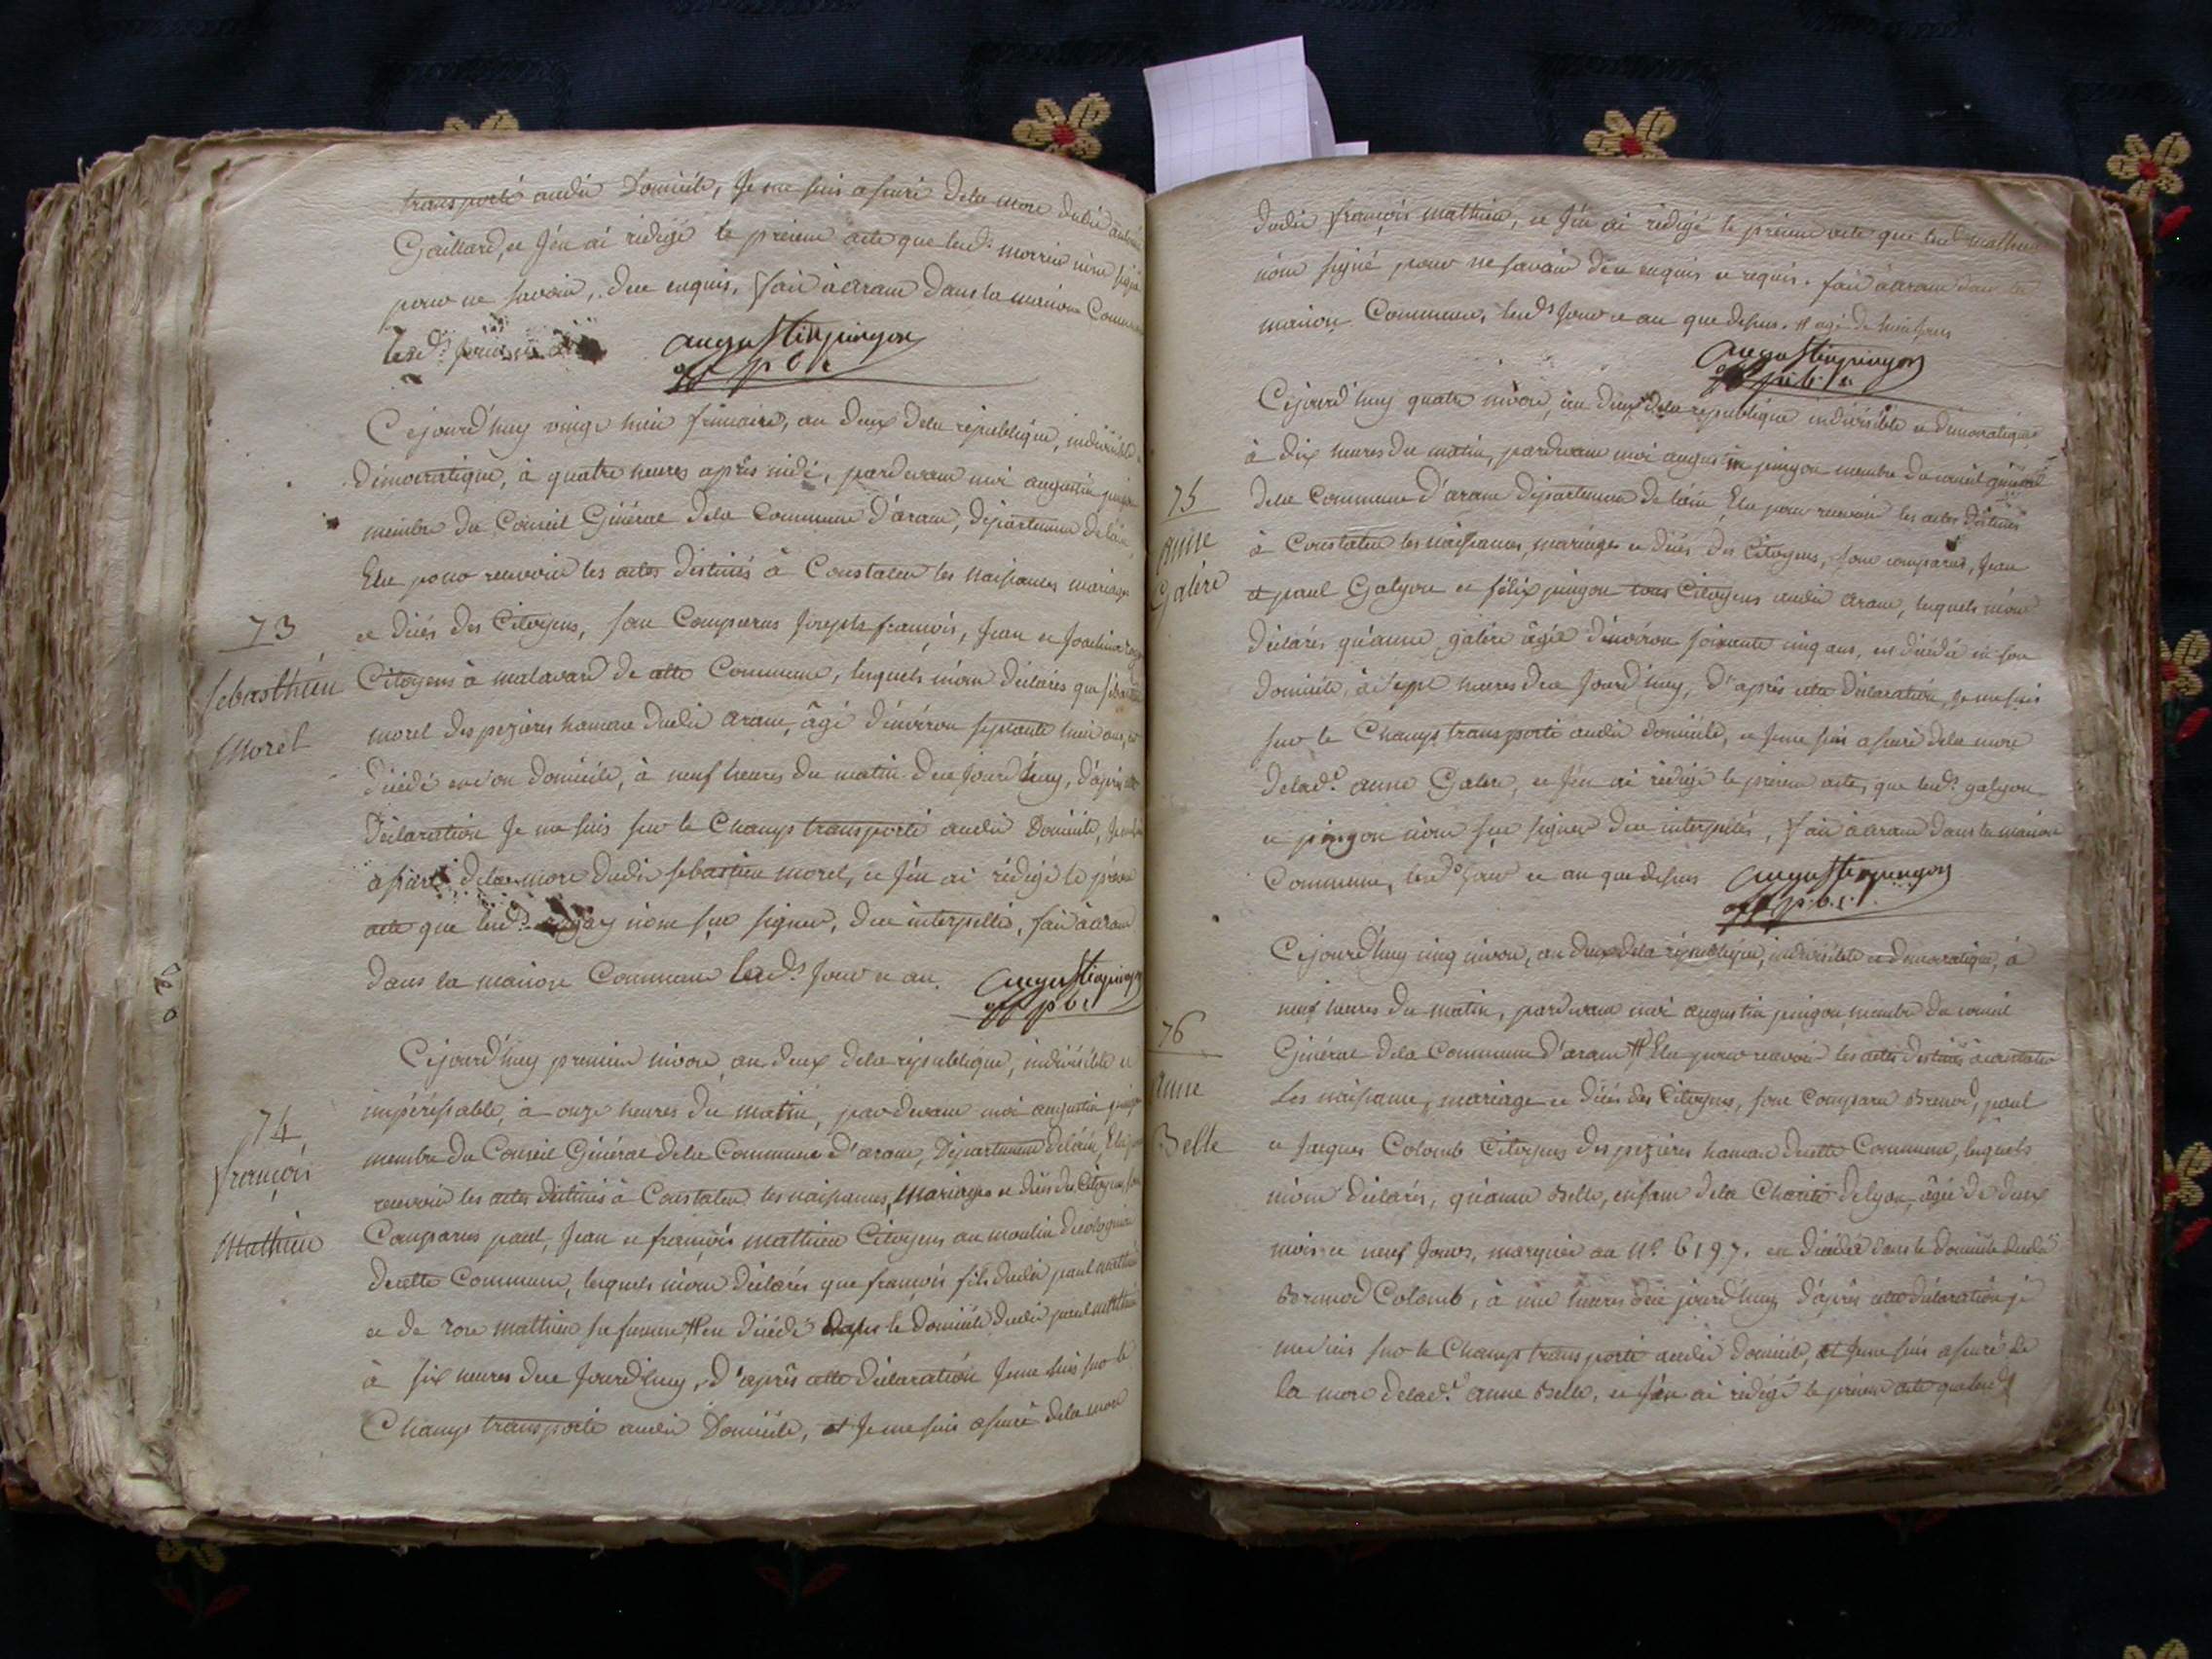 transporté audit Domicile, Je me suis assuré dela mort dudit
Gaillard, et J'en ai rédigé le présent acte que led.s n'ont signé
pour ne savoir, de ce enquis, fait à arant dans la maison Commune
lesd.s jour et an augustinpingon
off pbc
Cejourd'huy vingt huit frimaire, an deux dela république, indivisible
démocratique, à quatre heures après midi, pardevant moi augustin pingon
membre du Conseil Général dela Commune d'arant, département de l'ain
Elu pour recevoir les actes destinés à Constater les naissances mariages
73
et décés des Citoyens, sont Comparus Joseph françois, Jean et Joachim
sebasthien
Citoyens à malavard de cette Commune, lesquels m'ont déclarés que
morel
morel des pezieres hameau dudit arant, âgé d'environ septante huit ans, est
décédé en son domicile, à neuf heures du matin de ce Jourd'huy, d'après cette
déclaration Je me suis sur le Champ transporté audit Domicile,
assuré dela mort dudit sebastien morel, et J'en ai rédigé le présent
acte que led.s n'ont sçu signer, de ce interpellés, fait à arant
dans la maison Commune lesd.s Jour et an. augustinpingon
off pbc
Cejourd'huy premier nivose, an deux dela république, indivisible et
impérissable, à onze heures du matin, pardevant moi augustin pingon
74
membre du Conseil Général dela Commune d'arant, Département de l'ain, Elu pour
françois
recevoir les actes destinés à Constater les naissances, mariages et décés des Citoyens, sont
mathieu
Comparus paul, Jean et françois mathieu Citoyens au moulin
de cette Commune, lesquels m'ont déclarés que françois fils dudit paul mathieu
et de rose mathieu sa femme, # est décédé dans le domicile dudit paul mathieu
à six heures de ce Jourd'huy, d'après cette déclaration Je me suis sur le
Champ transporté audit Domicile, et Je me suis assuré dela mort
dudit françois mathieu, et J'en ai rédigé le présent acte que led.s mathieu
n'ont signé pour ne savoir de ce enquis et requis. fait à arant dans la
maison Commune, lesd.s Jour et an que dessus. # agé de huit jours
augustinpingon
off pubc
Cejourd'huy quatre nivose, an deux dela république indivisible et démocratique
à dix heures du matin, pardevant moi augustin pingon membre du conseil général
75
dela Commune d'arant département de l'ain, Elu pour recevoir les actes destinés
anne
à Constater les naissances, mariages et décés des Citoyens, sont comparus, Jean
Galère
et paul Galyon et félix pingon tous Citoyens audit arant, lesquels m'ont
déclarés qu'anne galère âgée d'environ soixante cinq ans, est décédée en son
domicile, à sept heures de ce Jourd'huy, d'après cette déclaration, Je me suis
sur le Champ transporté audit domicile, et Je me suis assuré dela mort
delad.e anne Galere, et J'en ai rédigé le présent acte, que led.s galyon
et pingon n'ont sçu signer de ce interpellés, fait à arant dans la maison
Commune, lesd.s Jour et an que dessus augustinpingon
off pbc
Cejourd'huy cinq nivose, an deux dela république, indivisible et démocratique, à
neuf heures du matin, pardevant moi augustin pingon, membre du conseil
76
Général dela Commune d'arant # Elu pour recevoir les actes destinés à constater
anne
Les naissance, mariage et décés des Citoyens, sont Comparu Bernod, paul
Belle
et Jacques Colomb Citoyens des pezieres hameau de cette Commune, lesquels
m'ont déclarés, qu'anne Belle, enfant dela Charité de lyon, âgée de deux
mois et neuf Jours, marquée au N.o 6197. est décédée dans le domicile dudit
Bernod Colomb, à une heures de ce jourd'huy, d'après cette déclaration je
me suis sur le Champ transporté audit domicile, et Je me suis assuré de
la mort delad.e anne Belle, et J'en ai rédigé le présent acte que lesd.s